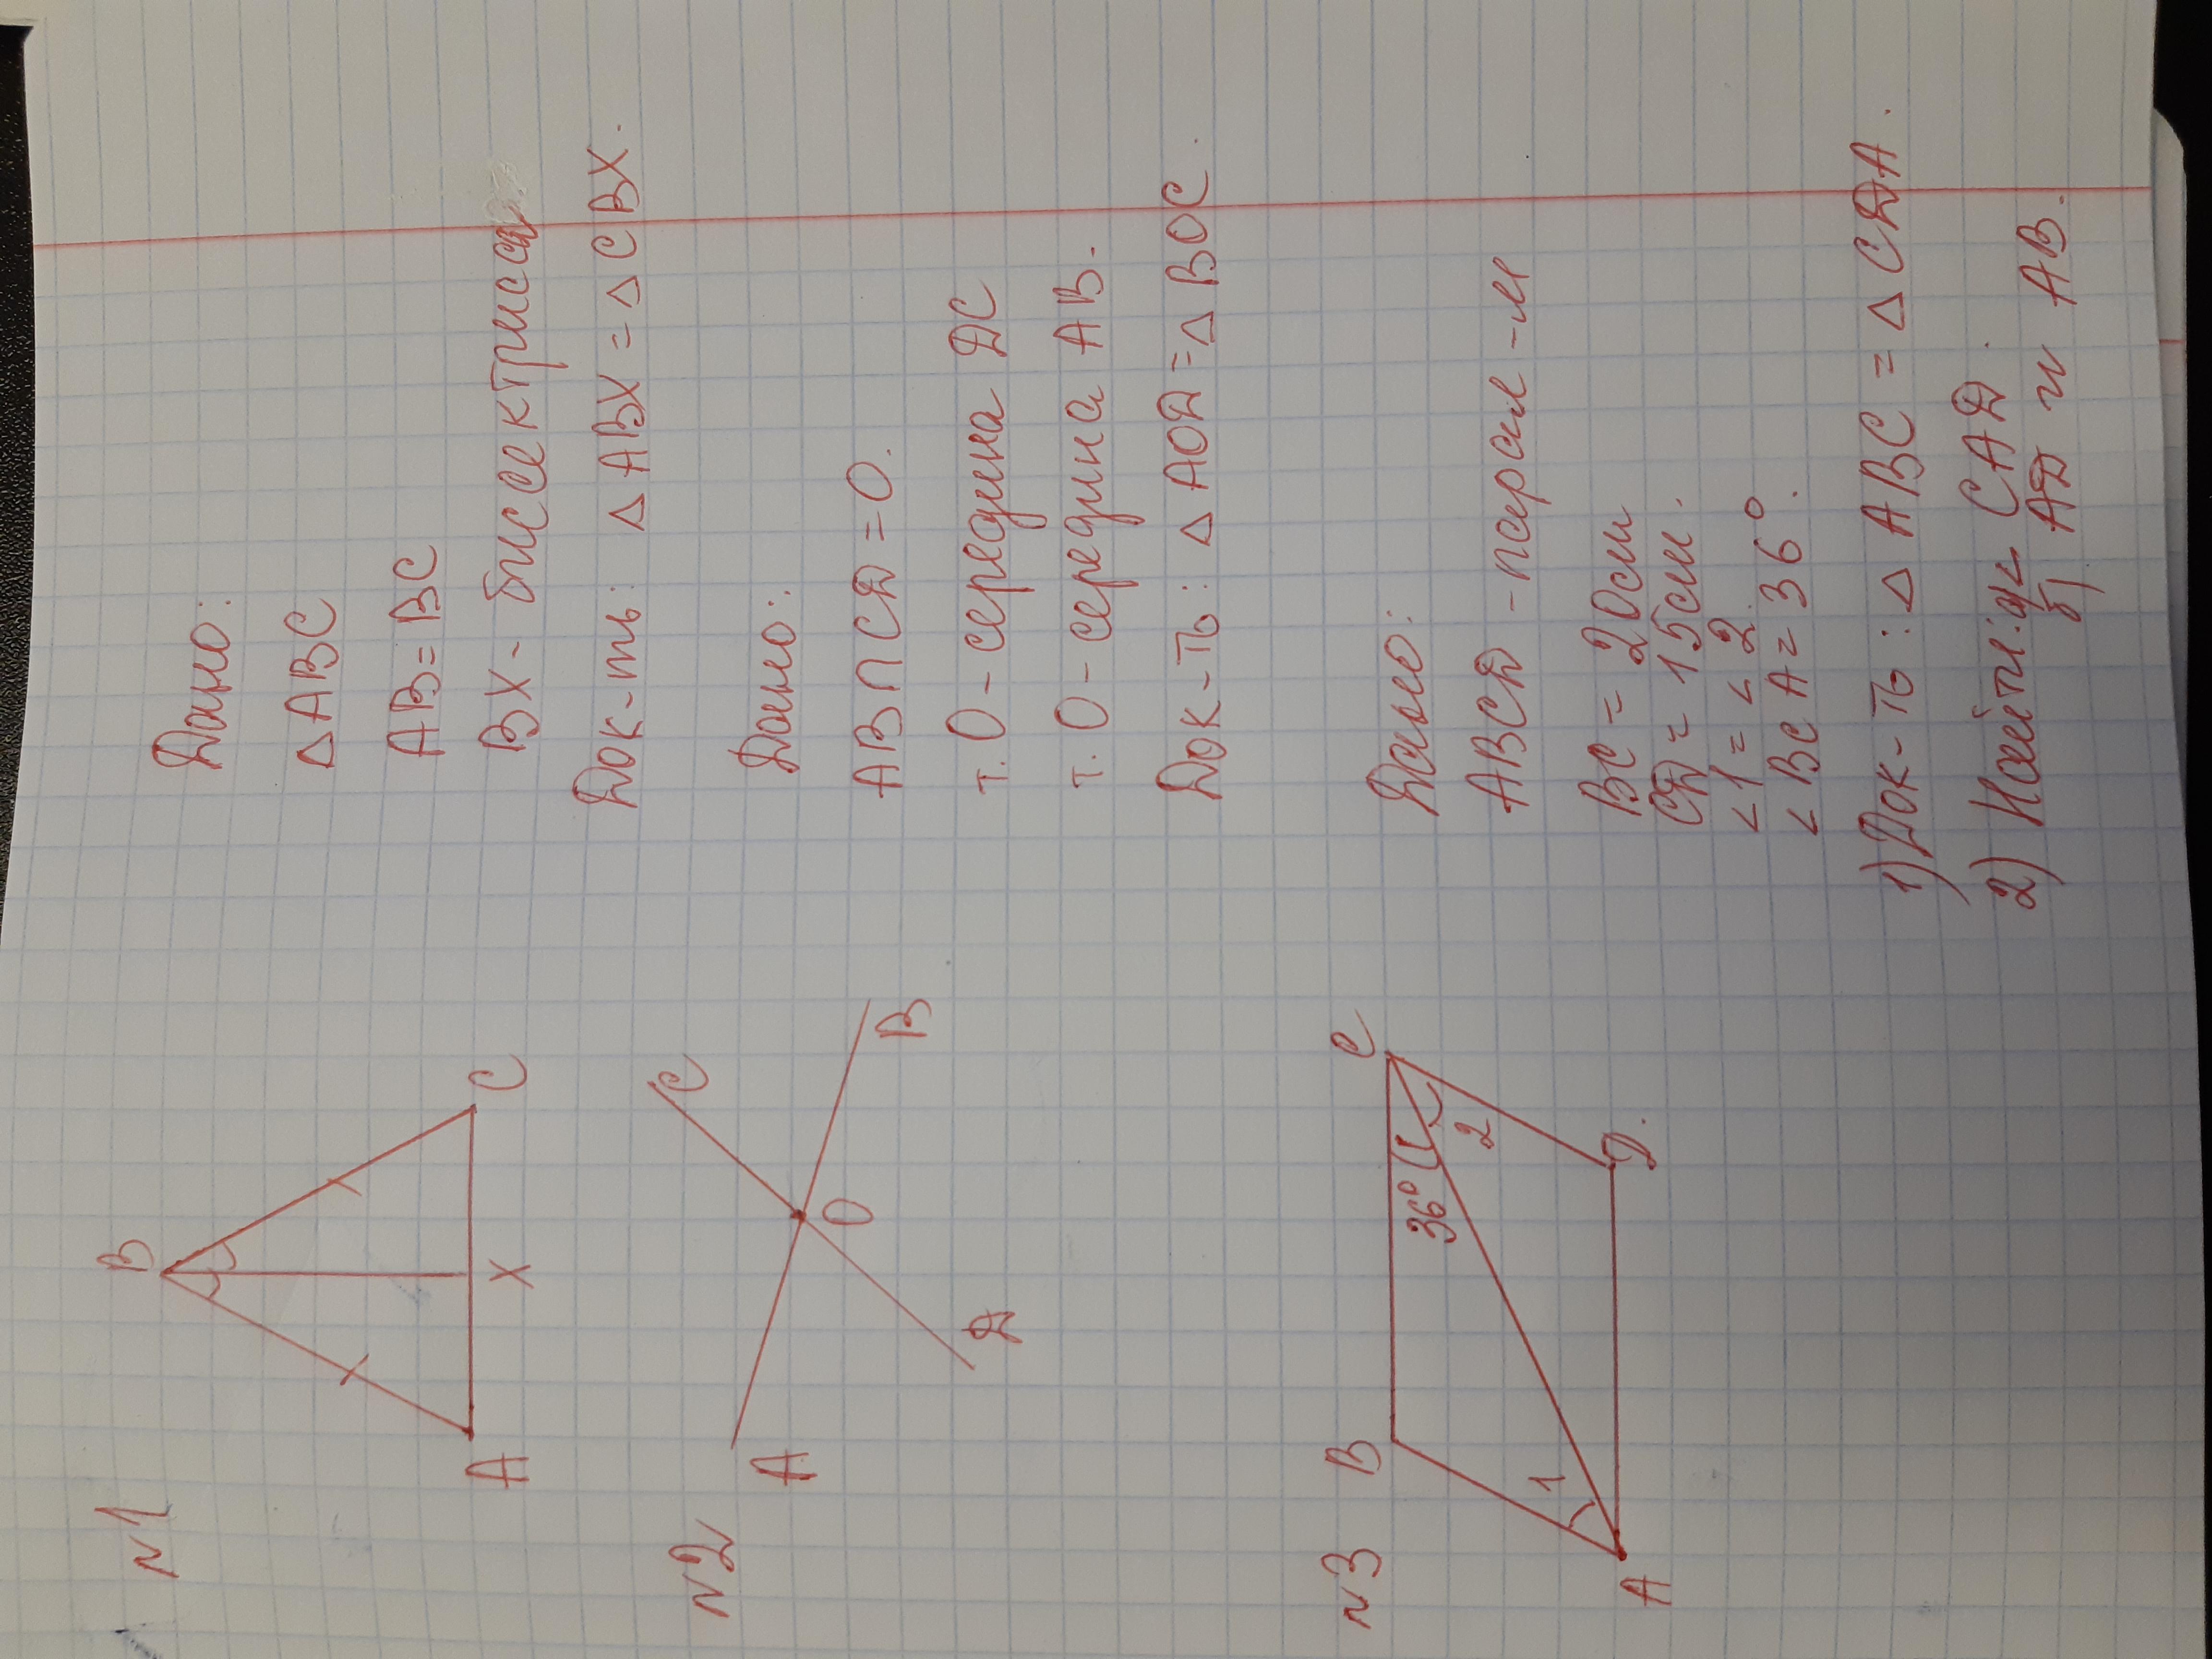 N1
B
A
X
C
Дано:
△ ABC
AB = BC
BX - биссектриса.
Док-ть: △ ABX = △ CBX.
N2
A
C
O
B
Д
Дано:
AB ∩ CД = O.
т. O - середина ДC
т. O - середина AB.
Док-ть: △ AOД = △ BOC.
N3
B
C
36°
1
2
A
Д.
Дано:
ABCД - парал-м
BC = 20см
CД = 15см.
∠1 = ∠2.
∠BCA = 36°.
1) Док-ть: △ ABC = △ CДA.
2) Найти: а) ∠ CAД
б) AД и AB.